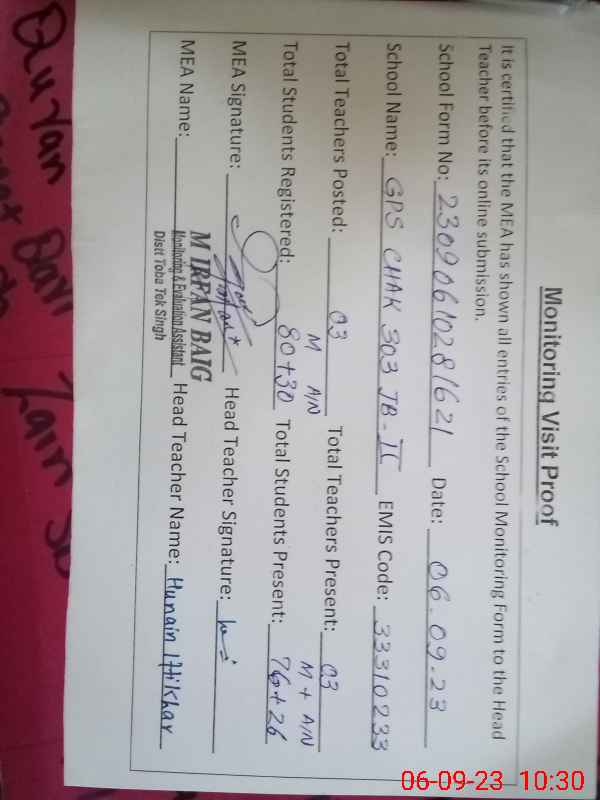 Monitoring Visit Proof
It is certified that the MEA has shown all entries of the School Monitoring Form to the Head
Teacher before its online submission.
School Form No: 23090610281621 Date: 06.09.23
School Name: GPS CHAK 303 JB-II EMIS Code: 33310233
Total Teachers Posted: 03 Total Teachers Present: 03
M A/N M + A/N
Total Students Registered: 80+30 Total Students Present: 76+26
MEA Signature: Head Teacher Signature:
M IRFAN BAIG
MEA Name: Monitoring & Evaluation Assistant Head Teacher Name: Hunain Iftikhar
Distt Toba Tek Singh
Quran
Zain
06-09-23 10:30